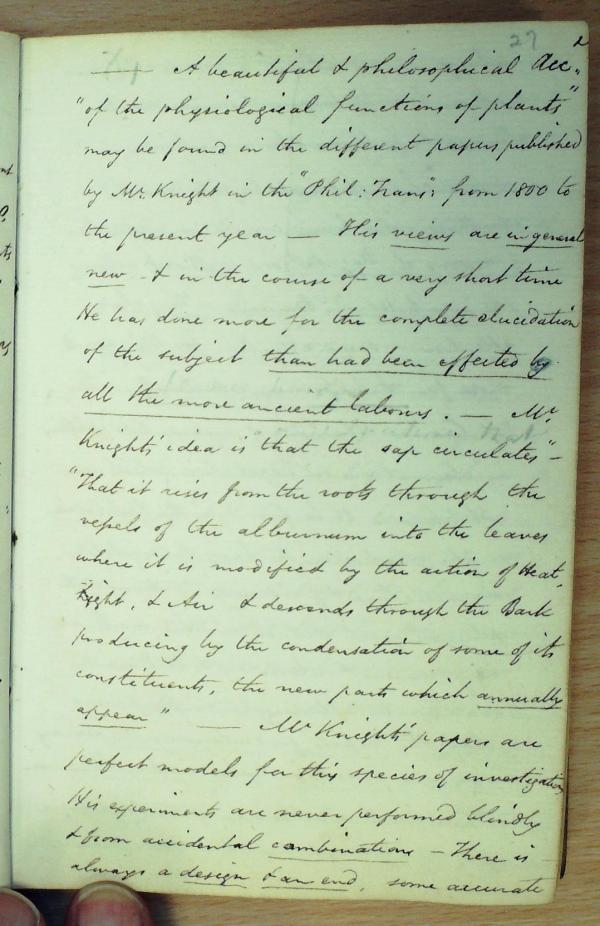 27
—— A beautiful & philosophical Acc.
"of the physiological functions of plants"
may be found in the different papers published
by Mr. Knight in the "Phil: Trans": from 1800 to
the present year — His views are in general
new - & in the course of a very short time
He has done more for the complete elucidation
of the subject than had been effected by
all the more ancient labours. — Mr
Knights' idea is that the sap circulates" -
"That it rises from the roots through the
vessels of the alburnum into the leaves
where it is modified by the action of Heat,
Light, & Air & descends through the Bark
producing by the condensation of some of its
constituents, the new parts which annually
appear" — Mr Knights' papers are
perfect models for this species of investigation
His experiments are never performed blindly
& from accidental combinations - There is
always a design & an end, some accurate